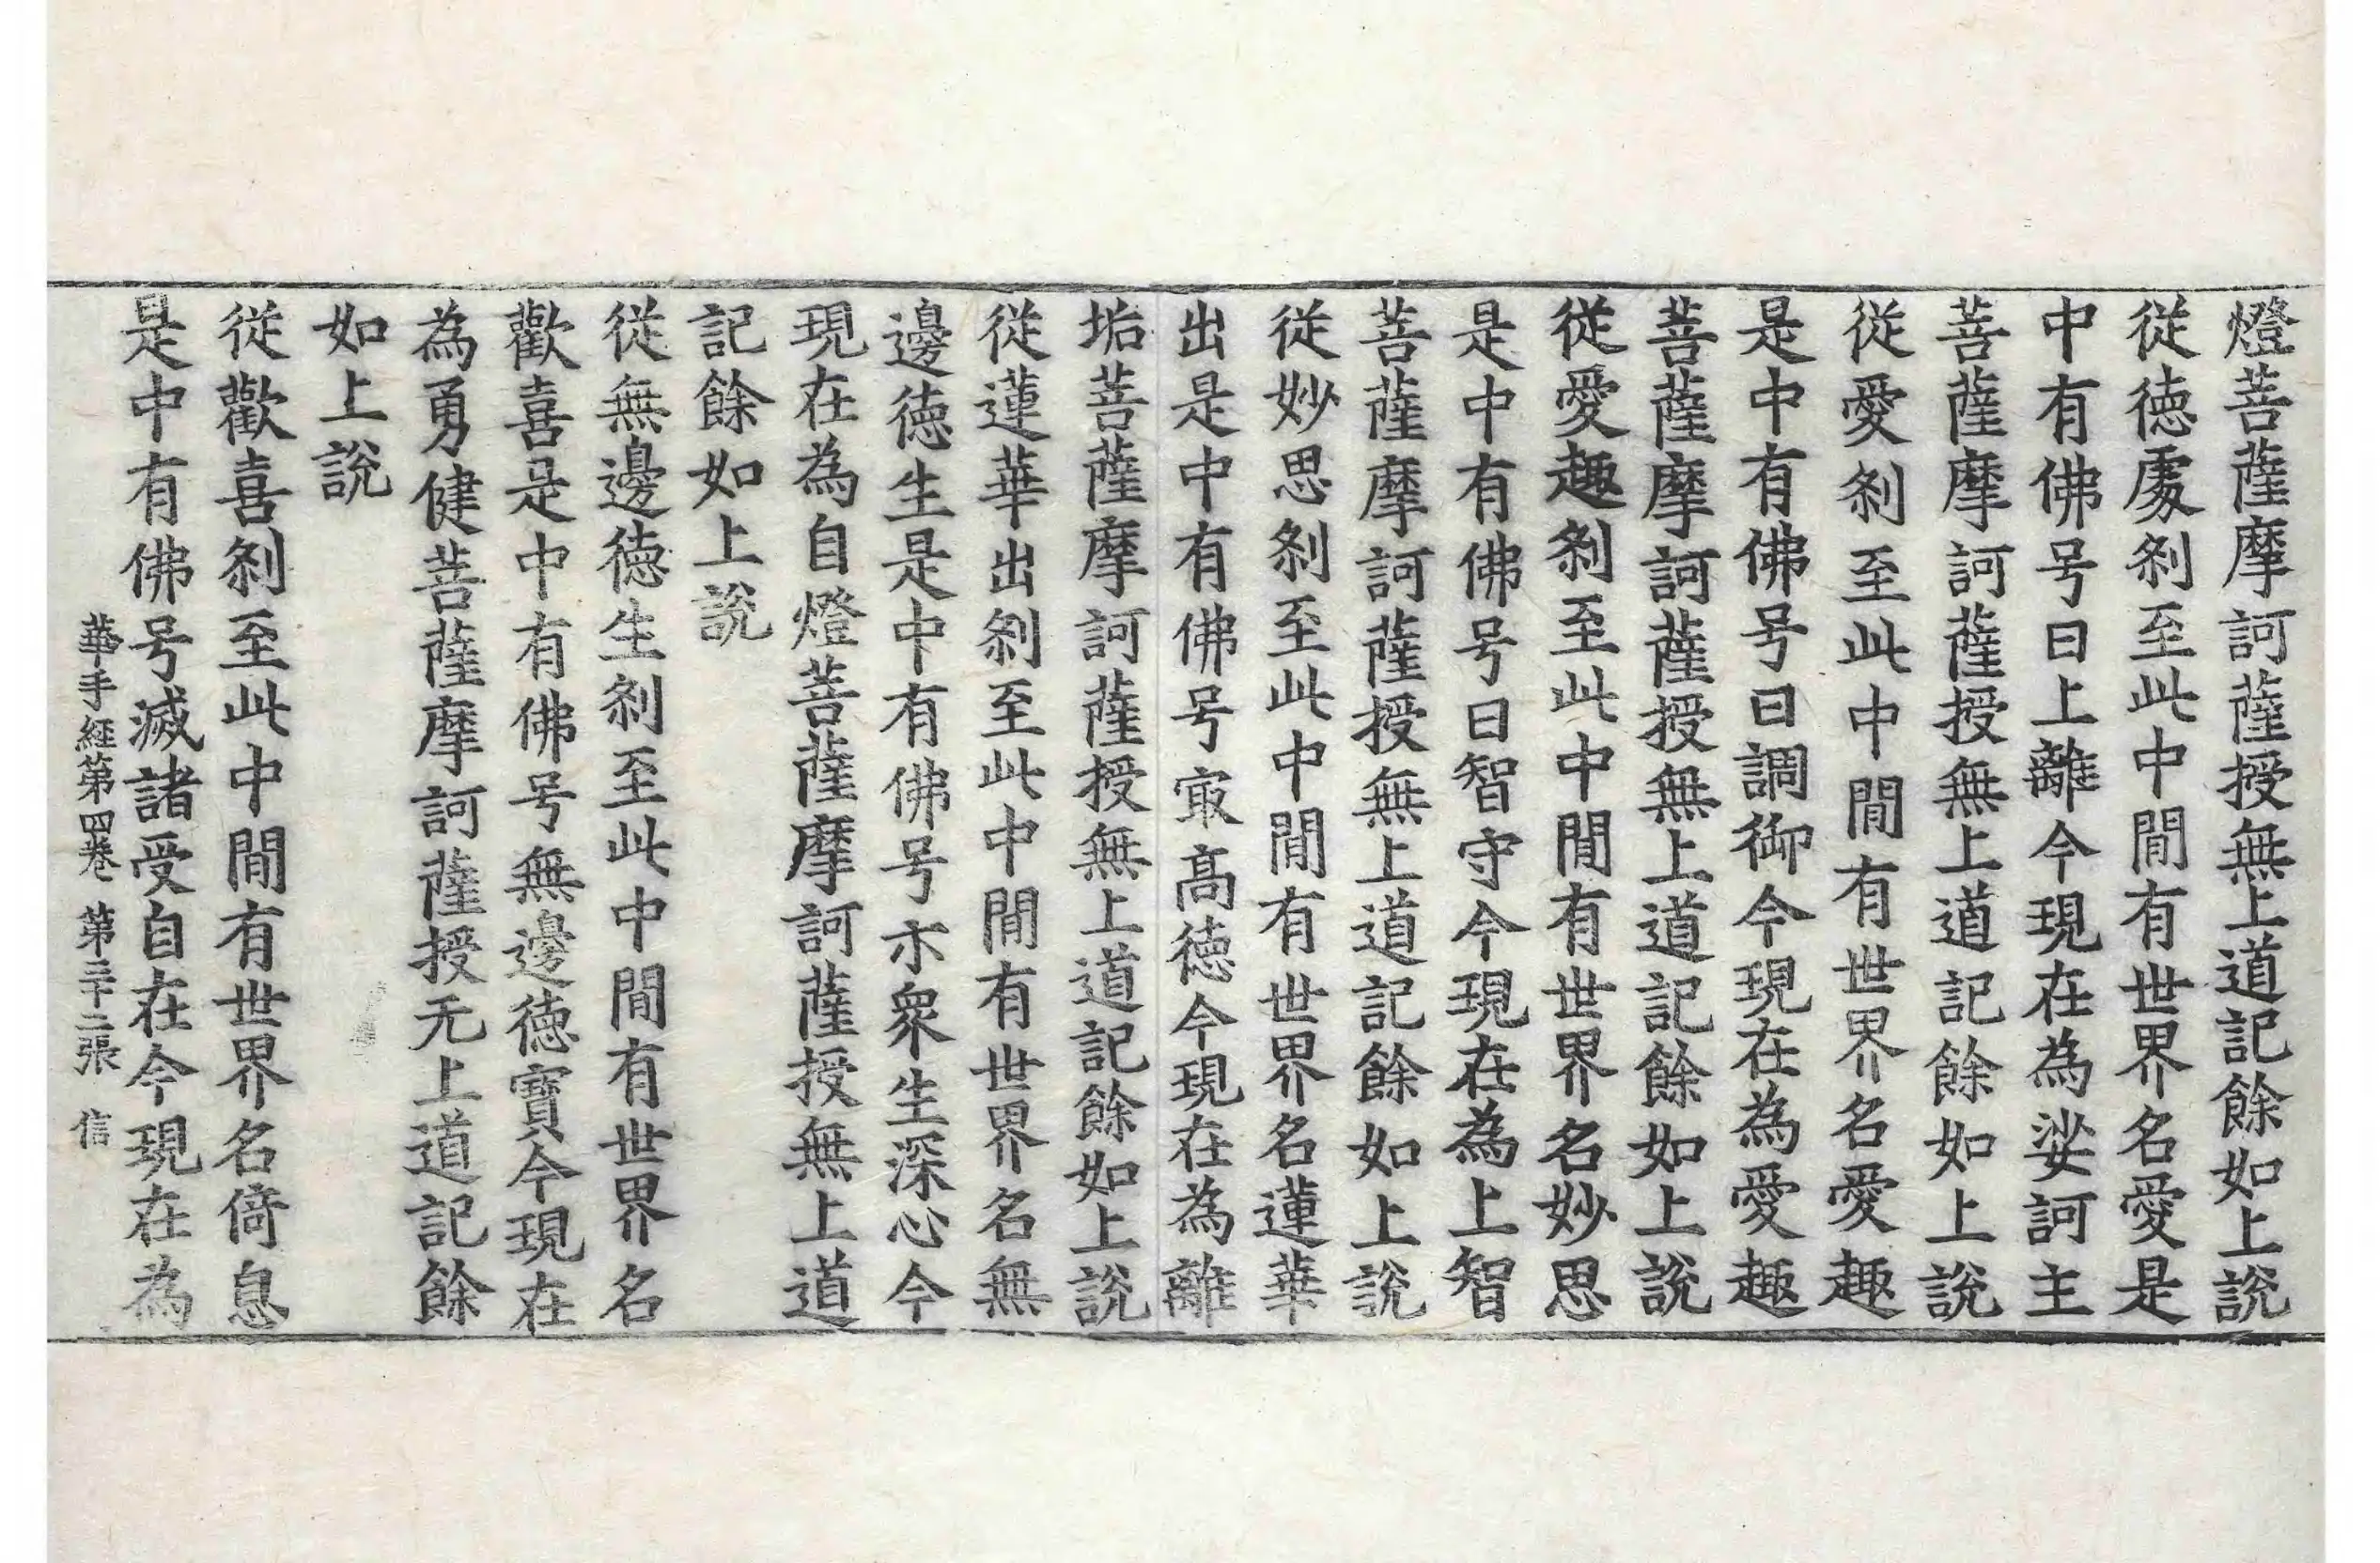 燈菩薩摩訶薩授無上道記餘如上說
從德處刹至此中閒有世界名愛是
中有佛号曰上離今現在為娑訶主
菩薩摩訶薩授無上道記餘如上說
從愛刹至此中閒有世界名愛趣
是中有佛号曰調御今現在為愛趣
菩薩摩訶薩授無上道記餘如上說
從愛趣刹至此中閒有世界名妙思
是中有佛号曰智守今現在為上智
菩薩摩訶薩授無上道記餘如上說
從妙思刹至此中閒有世界名蓮華
出是中有佛号冣髙德今現在為離
垢菩薩摩訶薩授無上道記餘如上說
從蓮華出刹至此中閒有世界名無
邊德生是中有佛号尒衆生深心今
現在為自燈菩薩摩訶薩授無上道
記餘如上說
從無邊德生刹至此中閒有世界名
歡喜是中有佛号無邊德寶今現在
為勇健菩薩摩訶薩授无上道記餘
如上說
從歡喜刹至此中閒有世界名倚息
是中有佛号滅諸受自在今現在為
華手經第四卷 第二十二張 信